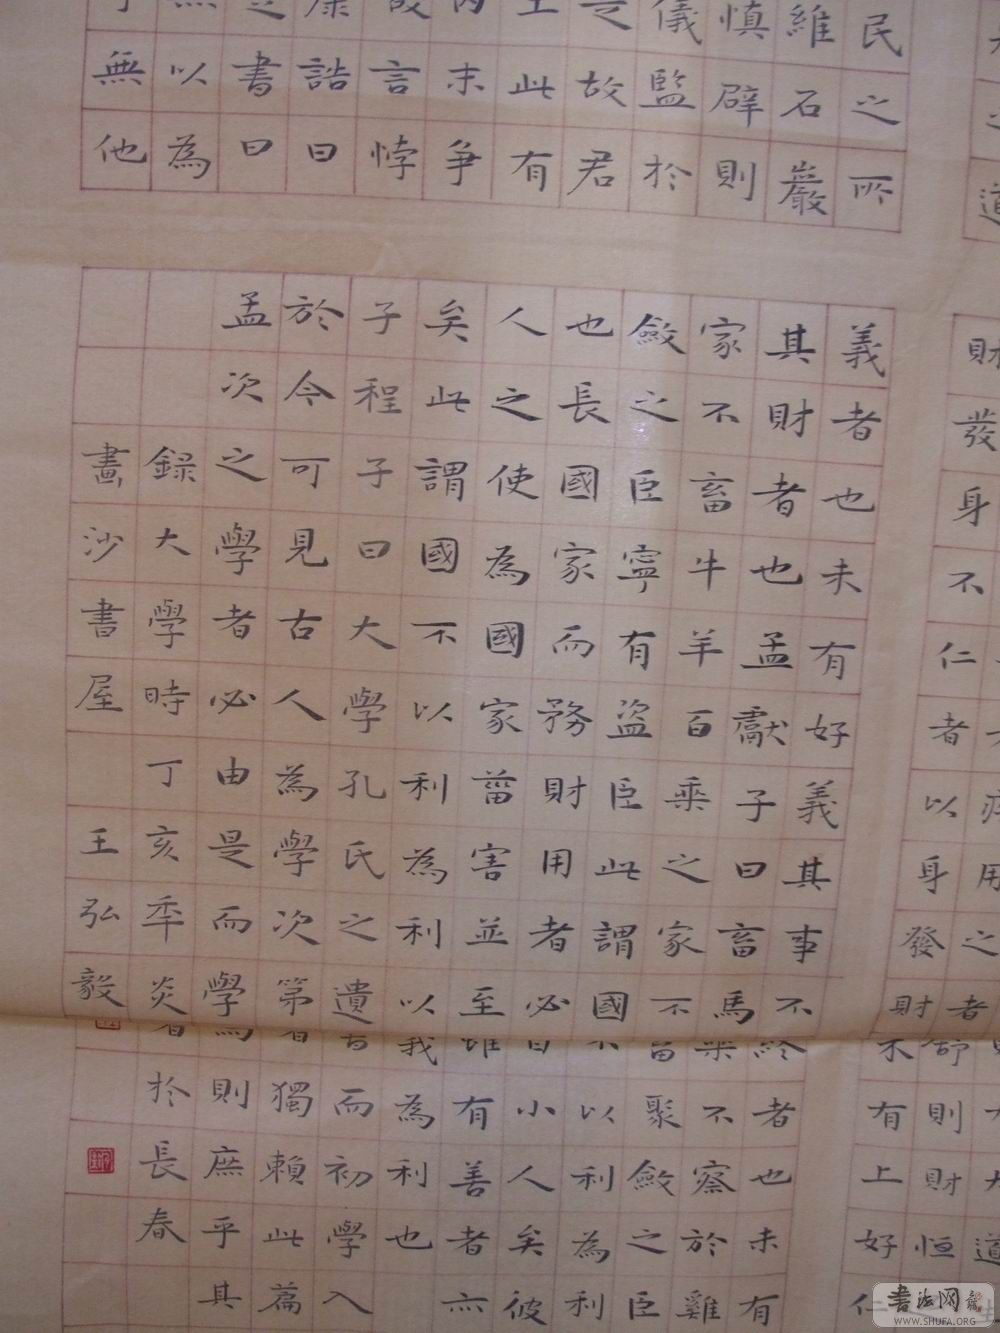 民之所
維石巖
慎辟則
儀監於
是故君
土此有
內末爭
故言悖
康誥曰
楚書曰
無以為
無他
財發身不仁者以身發財未有上好仁
用之者舒則財恒
義者也未有好義其事不終者也未有
其財者也孟獻子曰畜馬乘不察於雞
家不畜牛羊百乘之家不畜聚斂之臣
斂之臣寧有盜臣此謂國不以利為利
也長國家而務財用者必自小人矣彼
人之使為國家菑害並至雖有善者亦
矣此謂國不以利為利以義為利也
子程子曰大學孔氏之遺書而初學入
於今可見古人為學次第者獨賴此篇
孟次之學者必由是而學焉則庶乎其
錄大學時丁亥秊炎暑於長春
畫沙書屋王弘毅
书法网
WWW.SHUFA.ORG